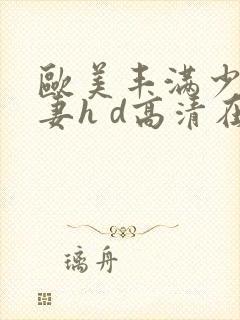 歐美丰滿少
妻h d高清在
璃舟